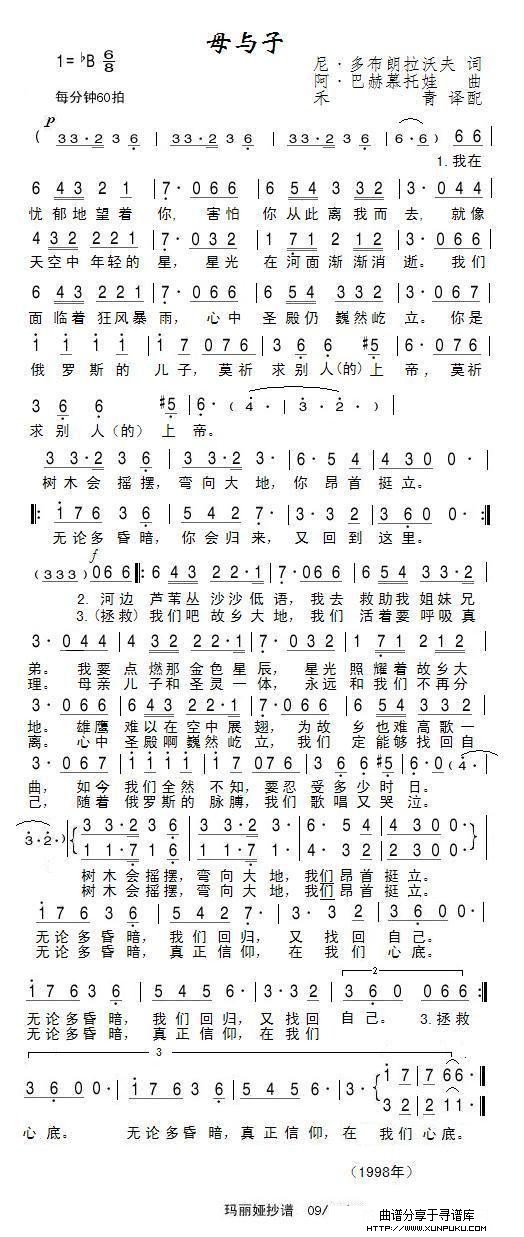 母与子
1=♭B 6/8
尼·多布朗拉沃夫 词
阿·巴赫慕托娃 曲
禾 青 译配
每分钟60拍
p
( 33·2 3 6 | 33·2 3 6 | 33·2 3 6 | 6·6· ) 6 6
1.我在
6 4 3 2 1 | 7· 0 6 6 | 6 5 4 3 3 2 | 3· 0 4 4 |
忧郁地望着 你, 害怕 你从此离我而 去, 就像
4 3 2 2 2 1 | 7· 0 3 2 | 1 7 1 2 1 2 | 3· 0 6 6 |
天空中 年轻的 星, 星光 在河面渐渐消 逝。 我们
6 4 3 2 2 1 | 7· 0 6 7 | 6 5 4 3 3 2 | 3· 0 6 7 |
面临着 狂风暴 雨, 心中 圣殿仍 巍然屹 立。你是
1 1 1 1 | 1 0 7 6 | 3 6 6 #5 | 7 1 0 7 6 |
俄罗斯的 儿子, 莫祈 求别人(的)上 帝, 莫祈
3 6 6 #5 | 6· ( 4· | 3· 2· ) |
求别 人(的) 上 帝。
3 3·2 3 6 | 3 3·2 3· | 6· 5 4 | 4 3 0 0 |
树木会 摇摆, 弯向大 地, 你 昂首 挺立。
‖: 1 7 6 3 6 | 5 4 2 7· | 3· 3 2 | 3 6 0 0 :‖
无论多 昏暗, 你会归来, 又回到 这里。
f
(333) 0 6 6 ‖: 6 4 3 2 2·1 | 7· 0 6 6 | 6 5 4 3 3 2 |
2. 河边 芦苇丛 沙沙 低语, 我去 救助我 姐妹兄
3.(拯救)我们吧 故乡大 地, 我们 活着要 呼吸真
3· 0 4 4 | 4 3 2 2 2·1 | 7· 0 3 2 | 1 7 1 2 1 2 |
弟。 我要 点燃那 金色星 辰, 星光 照耀着故乡大
理。 母亲 儿子和圣灵一 体, 永远 和我们不再分
3· 0 6 6 | 6 4 3 2 2·1 | 7· 0 6 6 | 6 5 4 3 3 2 |
地。 雄鹰 难以在空中展 翅, 为故 乡也难高歌一
离。 心中 圣殿啊巍然屹 立, 我们 定能够找回自
3· 0 6 7 | 1 1 1 1 | 1· 0 7 6 | 3 6 6 #5 | 6· 0 ( 4·
曲, 如今 我们全然 不知, 要忍 受多少时 日。
己, 随着 俄罗斯的 脉膊, 我们 歌唱又哭 泣。
3·2· ) | 3 3·2 3 6 | 3 3·2 3· | 6· 5 4 | 4 3 0 0 |
1 1·7 6 | 1 1·7 1· | 4· 3 2 | 2 3 0 0
树木会摇摆, 弯向大 地, 我们 昂首 挺立。
树木会摇摆, 弯向大 地, 我们 昂首 挺立。
1 7 6 3 6 | 5 4 2 7· | 3· 3 2 | 3 6 0 0 |
无论多昏暗, 我们回归, 又找回 自己。
无论多昏暗, 真正信仰, 在我们 心底。
2
1 7 6 3 6 | 5 4 5 6· | 3· 3 2 | 3 6 0 0 6 6 :‖
无论多昏暗, 我们回归, 又找回 自己。 3.拯救
无论多昏暗, 真正信仰, 在我们
3
3 6 0 0 | 1 7 6 3 6 | 5 4 5 6· | 3· 1 7 | 7 6 6· ‖
3 2 | 2 1 1· ‖
心底。 无论多昏暗,真正信仰,在 我们心底。
(1998年)
玛丽娅抄谱 09/
曲谱分享于寻谱库
HTTP://WWW.XUNPUKU.COM